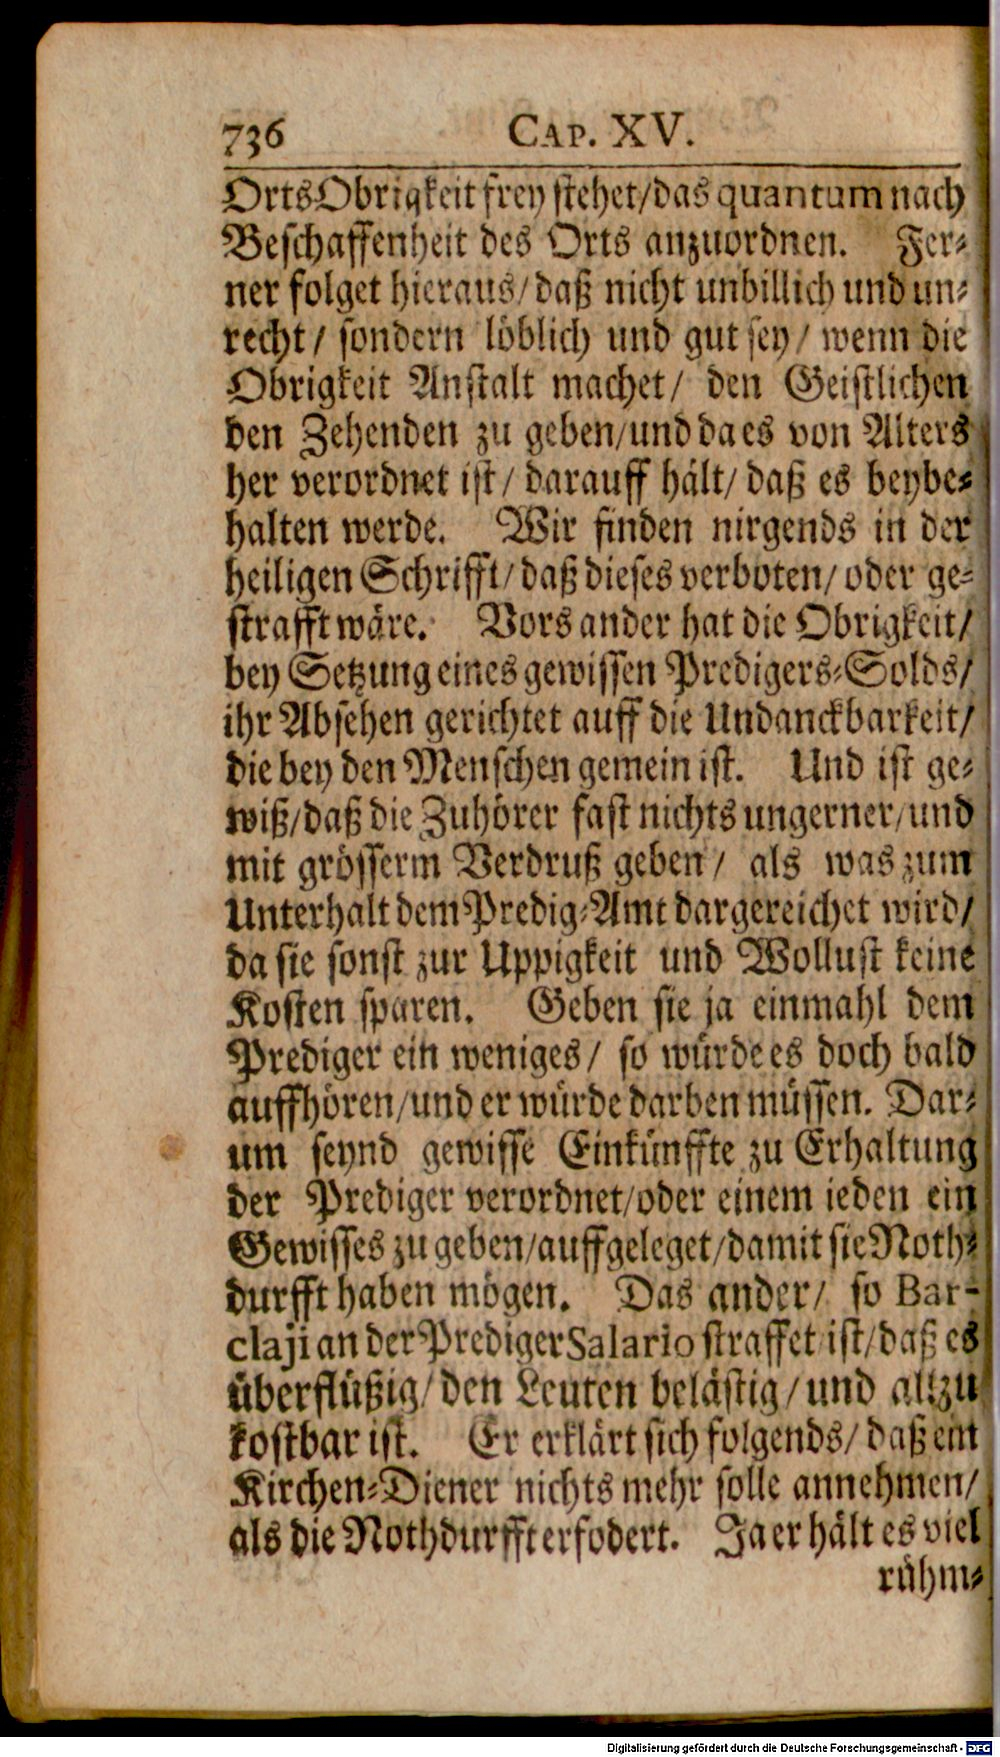 736 CAP. XV.
Orts Obrigkeit frey stehet/das quantum nach
Beschaffenheit des Orts anzuordnen. Fer⸗
ner folget hieraus/daß nicht unbillich und un⸗
recht/ sondern löblich und gut sey/ wenn die
Obrigkeit Anstalt machet/ den Geistlichen
den Zehenden zu geben/und da es von Alters
her verordnet ist/ darauff hält/ daß es beybe⸗
halten werde. Wir finden nirgends in der
heiligen Schrifft/daß dieses verboten/oder ge⸗
strafft wäre. Vors ander hat die Obrigkeit/
bey Setzung eines gewissen Predigers⸗Solds/
ihr Absehen gerichtet auff die Undanckbarkeit/
die bey den Menschen gemein ist. Und ist ge⸗
wiß/daß die Zuhörer fast nichts ungerner/und
mit grösserm Verdruß geben/ als was zum
Unterhalt dem Predig⸗Amt dargereichet wird/
da sie sonst zur Uppigkeit und Wollust keine
Kosten sparen. Geben sie ja einmahl dem
Prediger ein weniges/ so würde es doch bald
auffhören/und er würde darben müssen. Dar⸗
um seynd gewisse Einkünffte zu Erhaltung
der Prediger verordnet/oder einem ieden ein
Gewisses zu geben/auffgeleget/damit sie Noth⸗
durfft haben mögen. Das ander/ so Bar-
claji an der Prediger Salario straffet ist/daß es
überflüßig/den Leuten belästig/und allzu
kostbar ist. Er erklärt sich folgends/daß ein
Kirchen⸗Diener nichts mehr solle annehmen/
als die Nothdurfft erfodert. Ja er hält es viel
rühm⸗
Digitalisierung gefördert durch die Deutsche Forschungsgemeinschaft - DFG